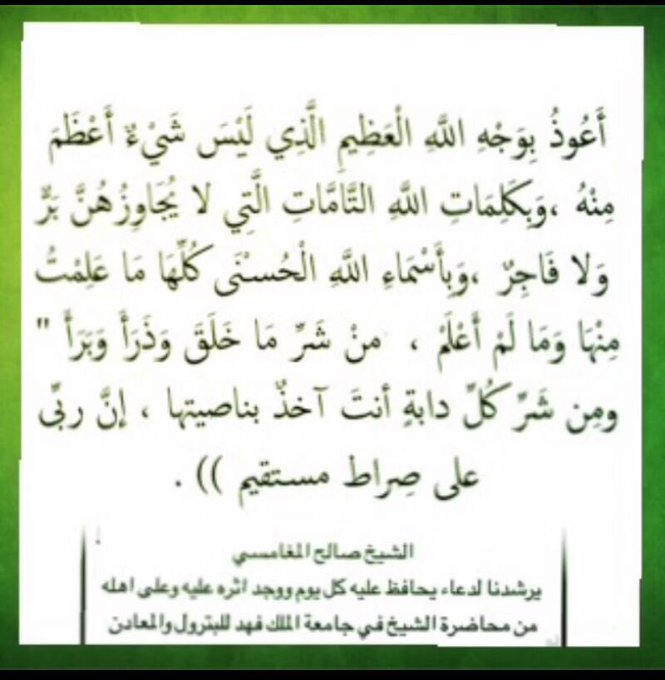 أَعُوذُ بِوَجْهِ اللَّهِ الْعَظِيمِ الَّذِي لَيْسَ شَيْءٌ أَعْظَمَ
مِنْهُ ،وَبِكَلِمَاتِ اللَّهِ التَّامَّاتِ الَّتِي لا يُجَاوِزُهُنَّ بَرٌّ
وَلا فَاجِرٌ ،وَبِأَسْمَاءِ اللَّهِ الْحُسْنَى كُلِّهَا مَا عَلِمْتُ
مِنْهَا وَمَا لَمْ أَعْلَمْ ، منْ شَرِّ مَا خَلَقَ وَذَرَأَ وَبَرَأَ "
ومِن شَرِّ كُلِّ دابةٍ أنتَ آخذٌ بناصيتها ، إنَّ ربّى
على صِراط مستقيم )) .
الشيخ صالح المغامسي
يرشدنا لدعاء يحافظ عليه كل يوم ووجد اثره عليه وعلى اهله
من محاضرة الشيخ في جامعة الملك فهد للبترول والمعادن